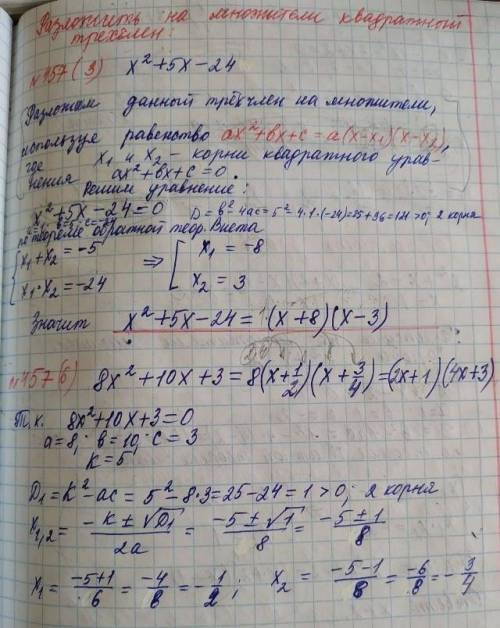 Разложить на множители квадратный
трёхчлен:
№157(3) x²+5x−24
Разложим данный трёхчлен на множители,
используя равенство ax²+bx+c=a(x−x₁)(x−x₂),
где x₁ и x₂ – корни квадратного урав-
нения ax²+bx+c=0.
Решим уравнение:
x²+5x−24=0 D=b²−4ac=5²−4·1·(−24)=25+96=121>0; 2 корня
по теореме обратной теор. Виета
{x₁+x₂=−5 ⇒ [x₁=−8
{x₁·x₂=−24 [x₂=3
Значит x²+5x−24=1·(x+8)(x−3)
№157(6) 8x²+10x+3=8(x+1/2)(x+3/4)=(2x+1)(4x+3)
Т.к. 8x²+10x+3=0
a=8; b=10; c=3
k=5
D₁=k²−ac=5²−8·3=25−24=1>0; 2 корня
x₁,₂=(−k±√D₁)/2a=(−5±√1)/8=(−5±1)/8
x₁=(−5+1)/6=−4/8=−1/2; x₂=(−5−1)/8=−6/8=−3/4